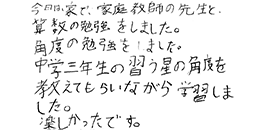 今日は、家で、家庭教師の先生と、
算数の勉強をしました。
角度の勉強をしました。
中学三年生の習う星の角度を
教えてもらいながら学習しま
した。
楽しかったです。